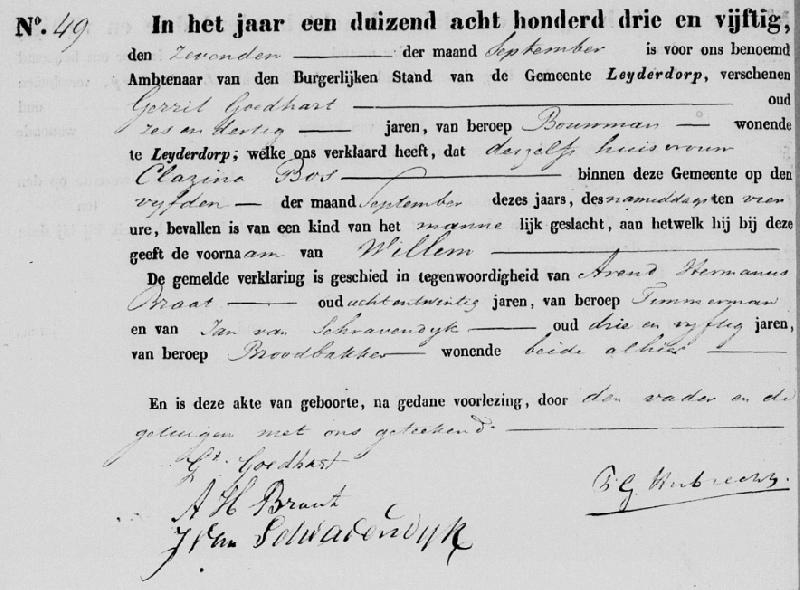 No. 49 In het jaar een duizend acht honderd drie en vijftig,
den Zevenden der maand September is voor ons benoemd
Ambtenaar van den Burgerlijken Stand van de Gemeente Leyderdorp, verschenen
Gerrit Goedhart oud
zes en dertig jaren, van beroep Bouwman wonende
te Leyderdorp, welke ons verklaard heeft, dat deszelfs huisvrouw
Clazina Bos binnen deze Gemeente op den
vyfden der maand September dezes jaars, des namiddags ten vier
ure, bevallen is van een kind van het manne lijk geslacht, aan hetwelk hij bij deze
geeft de voornaam van Willem
De gemelde verklaring is geschied in tegenwoordigheid van Arend Hermanus
Braat oud acht en twintig jaren, van beroep Timmerman
en van Jan van Schravendyk oud drie en vyftig jaren,
van beroep Broodbakker wonende beide alhier
En is deze akte van geboorte, na gedane voorlezing, door den vader en de
getuigen met ons geteekend.
Gt. Goedhart
A H Braat
J Van Schravendyk